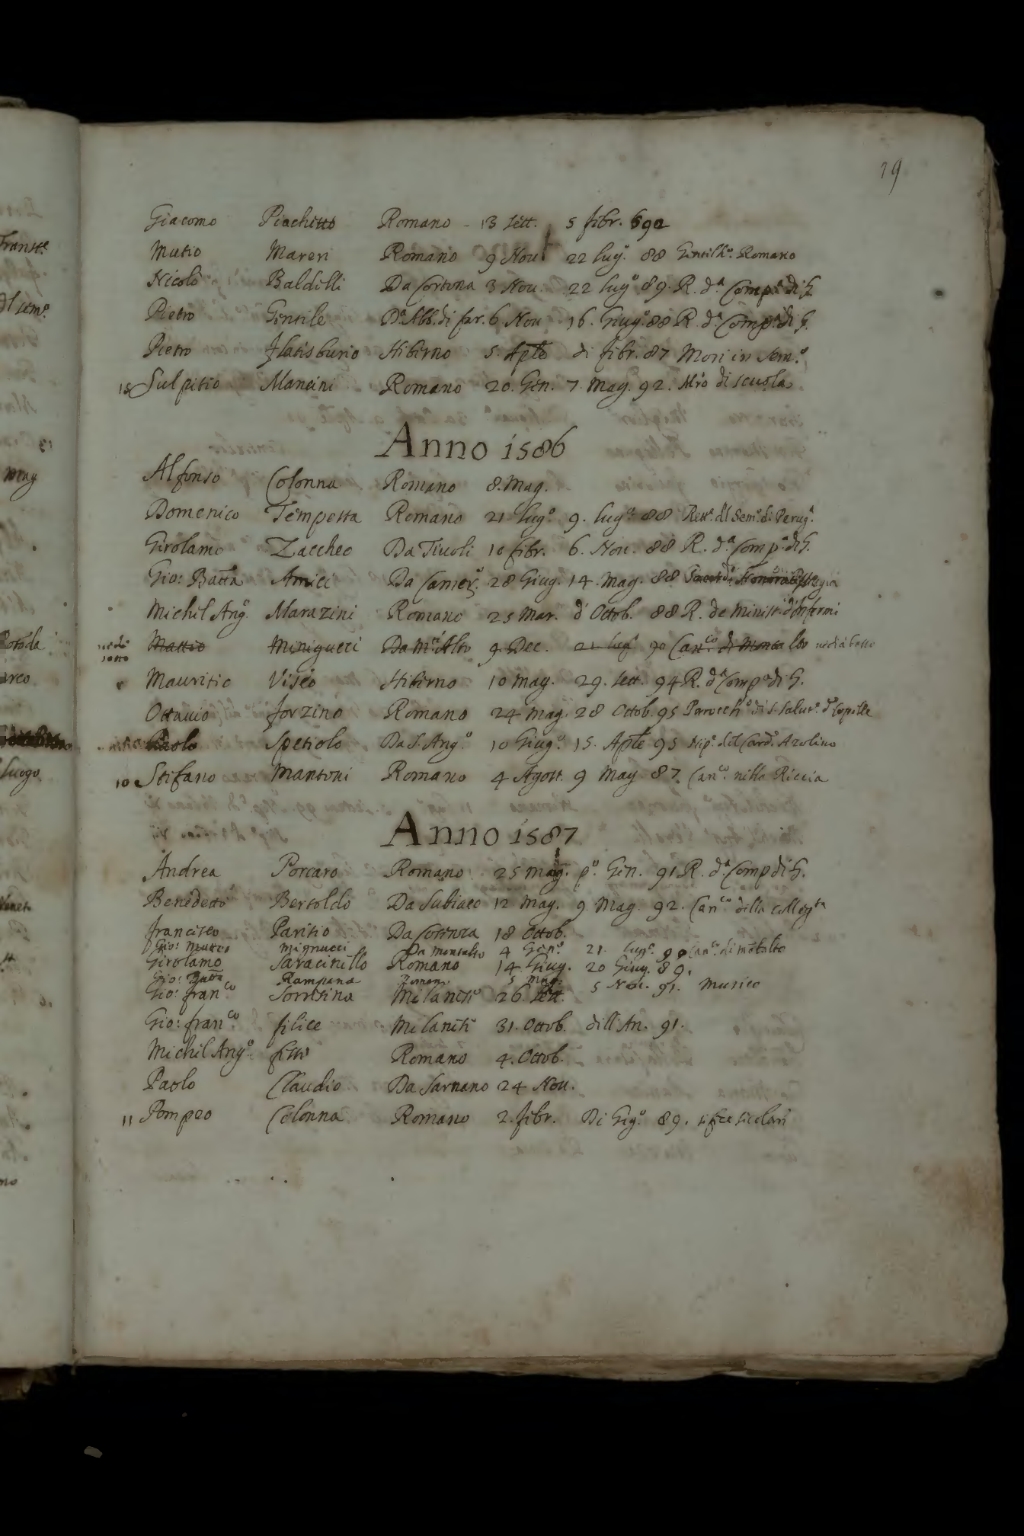 19
Giacomo Piachetto Romano 13 Sett. 5 febr. 92
Mutio Mareri Romano 9 Nou. 22 lug. 88 Gentilh.º Romano
Nicolò Baldelli Da Cortona 3 Nou. 22 lugº 89. R. d.ª Comp.ª di G.
Pietro Gentile di far. 6 Nou 16. Giugº 88 R. d.ª Comp.ª di G.
Pietro Hiberno 5. Aple di febr. 87 Mori in Sem.º
Sulpitio Mancini Romano 20. Gen. 7 Mag. 92. Mro di scuola
Anno 1586
Alfonso Colonna Romano 8. Mag.
Domenico Tempesta Romano 21 lugº. 9. lugº 88 Rett.º del Sem.º di Perug.ª
Girolamo Zaccheo Da Tiuoli 10 febr. 6. Nou. 88 R. d.ª Comp.ª di G.
Gio: Batta Amici Da 28 Giug. 14. Mag. 88
Michel Angº Marazini Romano 25 Mar. di Ottob. 88 R. de Ministri d'Infermi
Matteo Minigucci Da M.te Alto 9 Dec. 21 lug 90 Can.co
Mauritio Viseo Hiberno 10 mag. 29. Sett. 94 R. d.ª Comp.ª di G.
Ottauio Forzino Romano 24 Mag. 28 Ottob. 95 Parocch.º di S. Saluat.º
Paolo Spetiolo Da S. Ang.º 10 Giugº. 15. Aple 95 nip.º del Card. Azolino
10 Stefano Mantoni Romano 4 Agost. 9 Mag 87. Can.co nella Riccia
Anno 1587
Andrea Porcaro Romano 25 mag. pº. Gen. 91. R. d.ª Comp di G.
Benedetto Bertoldo Da Subiaco 12 Mag. 9 Mag. 92. Can.co della
francesco Paritio Da Cortona 18 Ottob.
Gio: Matteo Mignucci Da Montalto 4 Gen.º 21. lugº. 90 Can.co di Mõtalto
Girolamo Saracinello Romano 14 Giug. 20 Giug. 89.
Gio: Batta Rampana Romano 5 Mag. 5 Nou. 91. Musico
Gio: fran.co Sorresina Milanese 26 Sett.
Gio: fran.co felice Milanese 31. Ottob. dell'An. 91.
Michel Angº. Romano 4. Ottob.
Paolo Claudio Da Sarnano 24 Nou.
11 Pompeo Colonna Romano 2. febr. Di Giug.º 89.